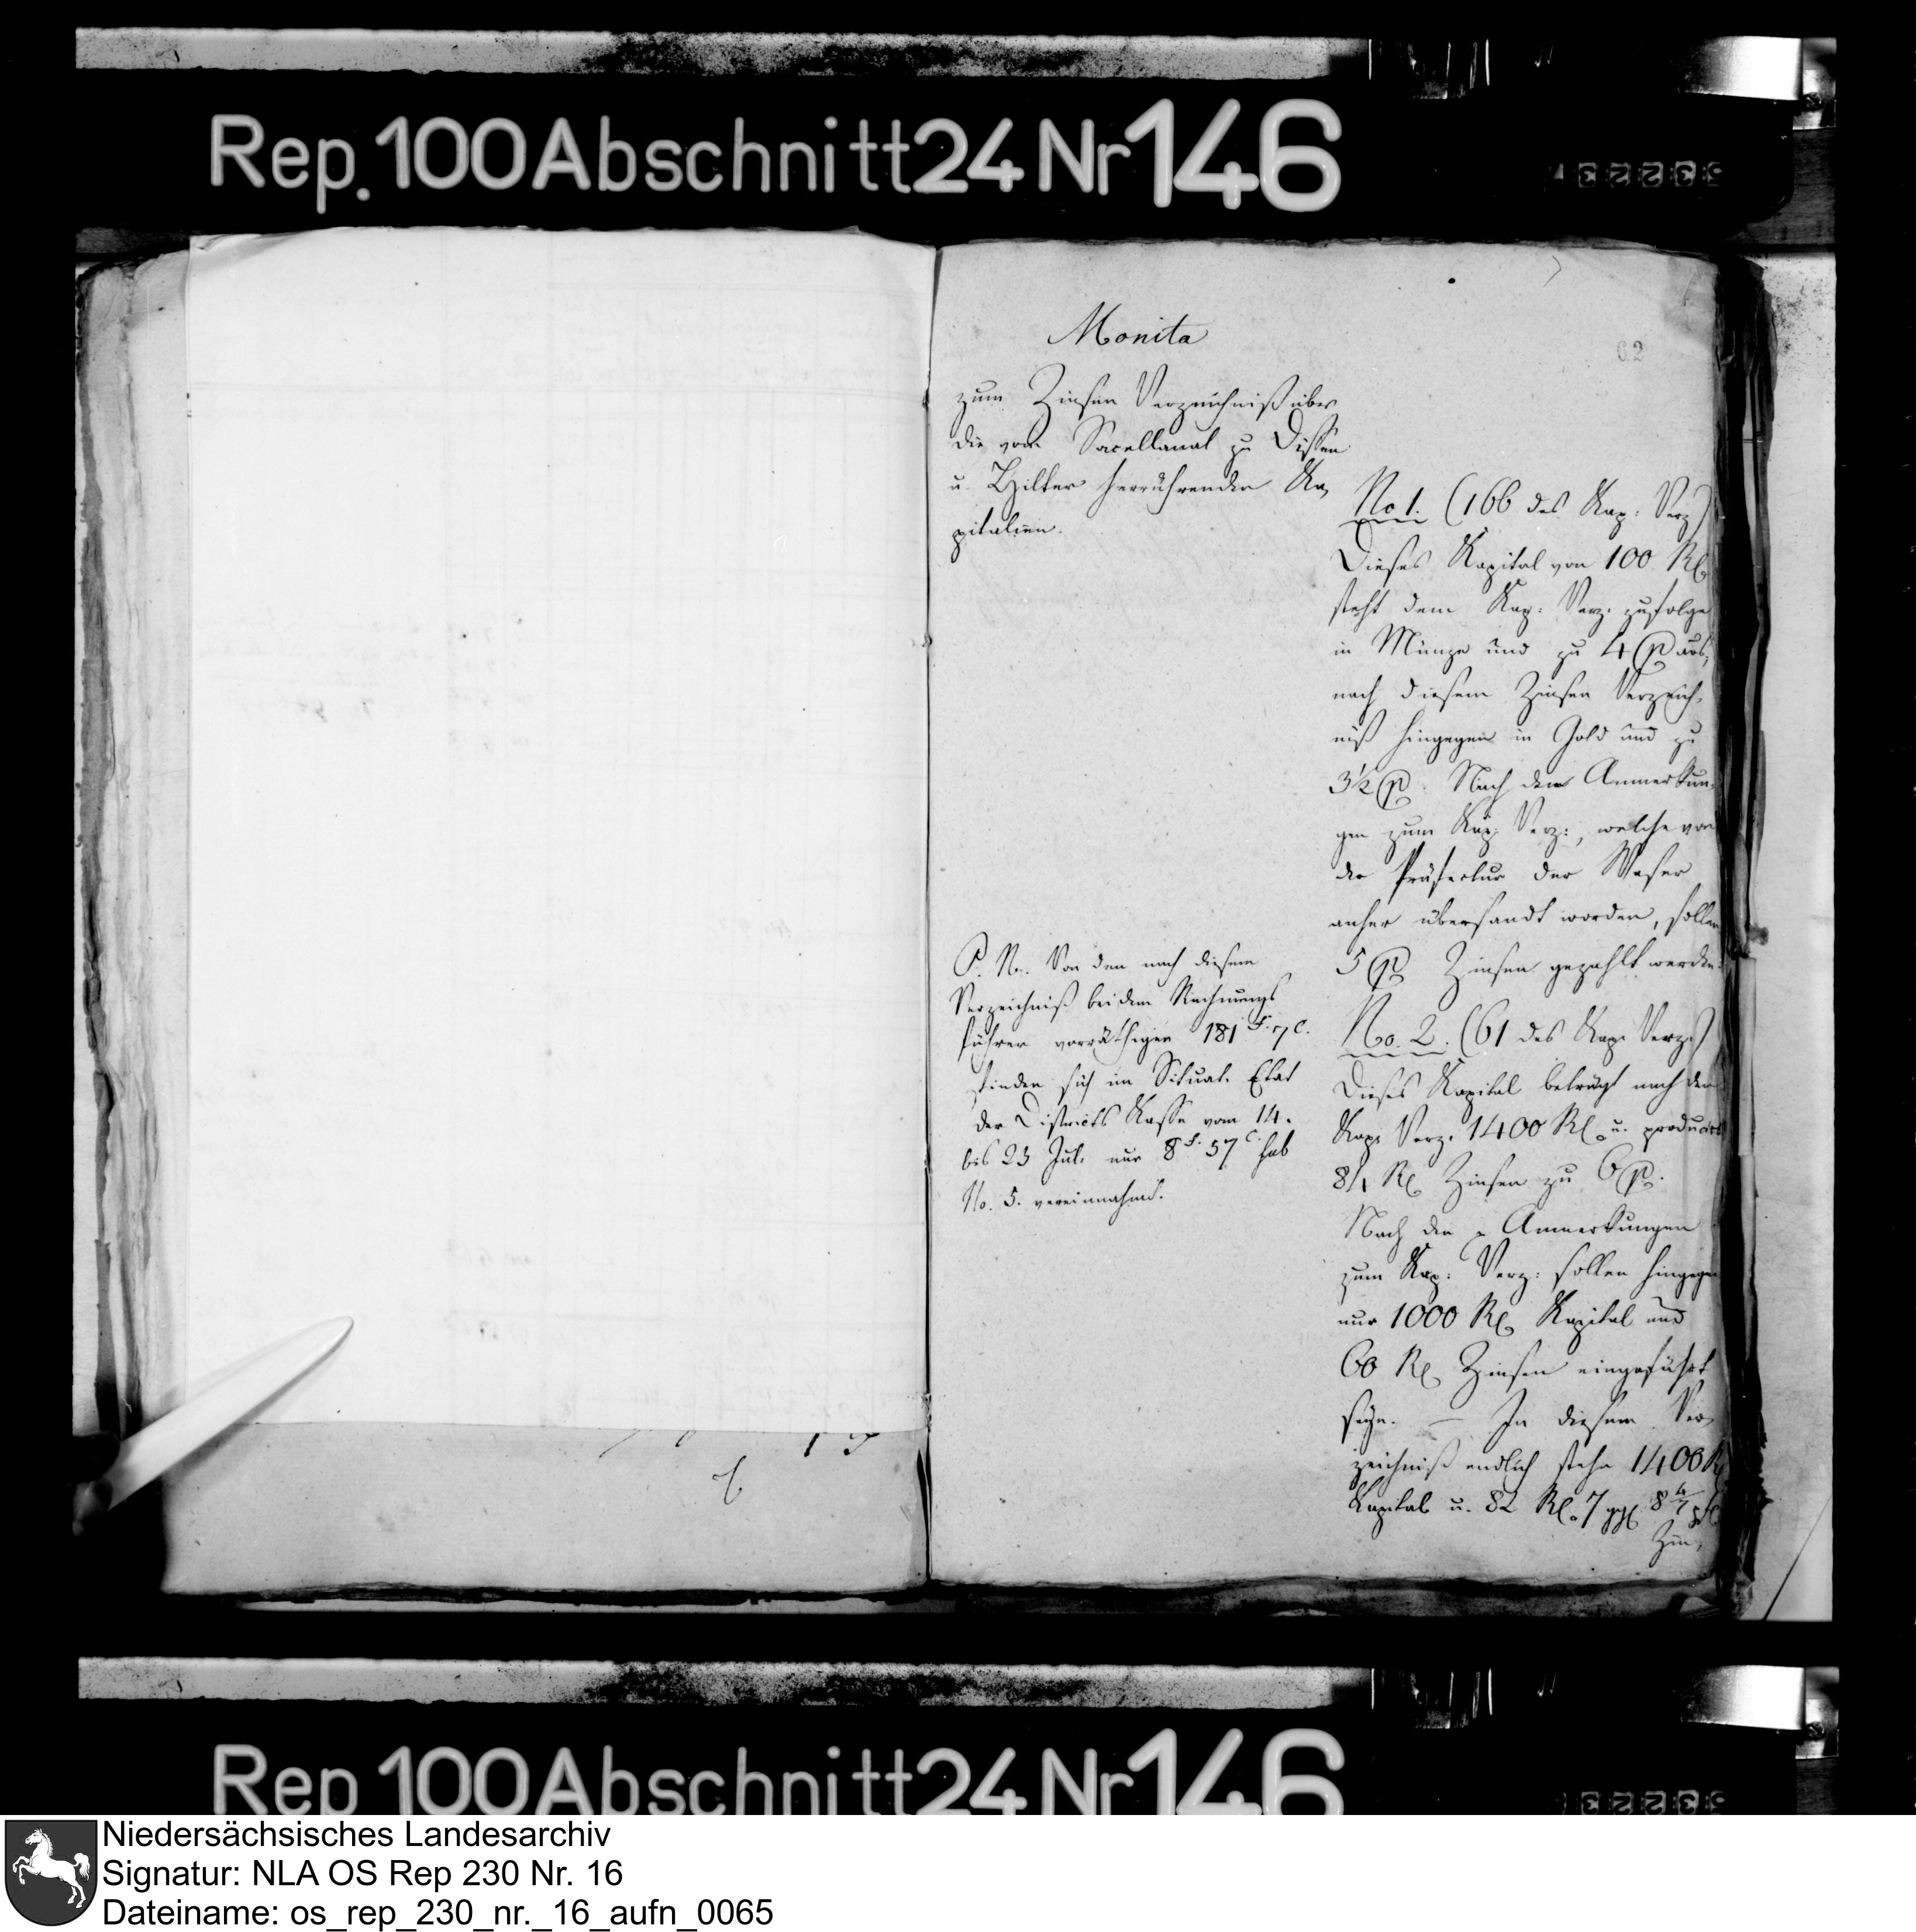 Rep. 100 Abschnitt 24 Nr 146
53223
62
Monita
zum Zinsen Verzeichniß über
die vom Sacellanat zu Dissen
u. Hilter herrührenden Ka,
pitalien.
P. N. Von den nach diesem
Verzeichniß bei dem Rechnungs
führer vorräthigen 181 f. 7 c.
finden sich im Situat. Etat
der Districts Kasse vom 14.
bis 23 Jul. nur 8 f. 57 c. sub
No. 5. vereinnahmt.
No 1. (166 des Kap: Verz)
Dieses Kapital von 100 Rl
steht dem Kap: Verz: zufolge
in Münze und zu 4 p aus,
nach diesem Zinsen Verzeich,
niß hingegen in Gold und zu
3½ p. Nach den Anmerkun,
gen zum Kap: Verz:, welche von
der Präfectur der Weser
anher übersandt worden, sollen
5 p Zinsen gezahlt werden.
No. 2. (61 des Kap: Verz:)
Dieses Kapital beträgt nach dem
Kap: Verz. 1400 Rl. u. producirt
84 Rl Zinsen zu 6 p.
Nach den Anmerkungen
zum Kap: Verz: sollen hingegen
nur 1000 Rl Kapital und
60 Rl Zinsen eingeführt
seyn. — In diesem Ver,
zeichniß endlich stehn 1400 Rl
Kapital u. 82 Rl. 7 ggl 8 4/7 pf
Zin,
Rep 100 Abschnitt 24 Nr 146
53223
Niedersächsisches Landesarchiv
Signatur: NLA OS Rep 230 Nr. 16
Dateiname: os_rep_230_nr._16_aufn_0065